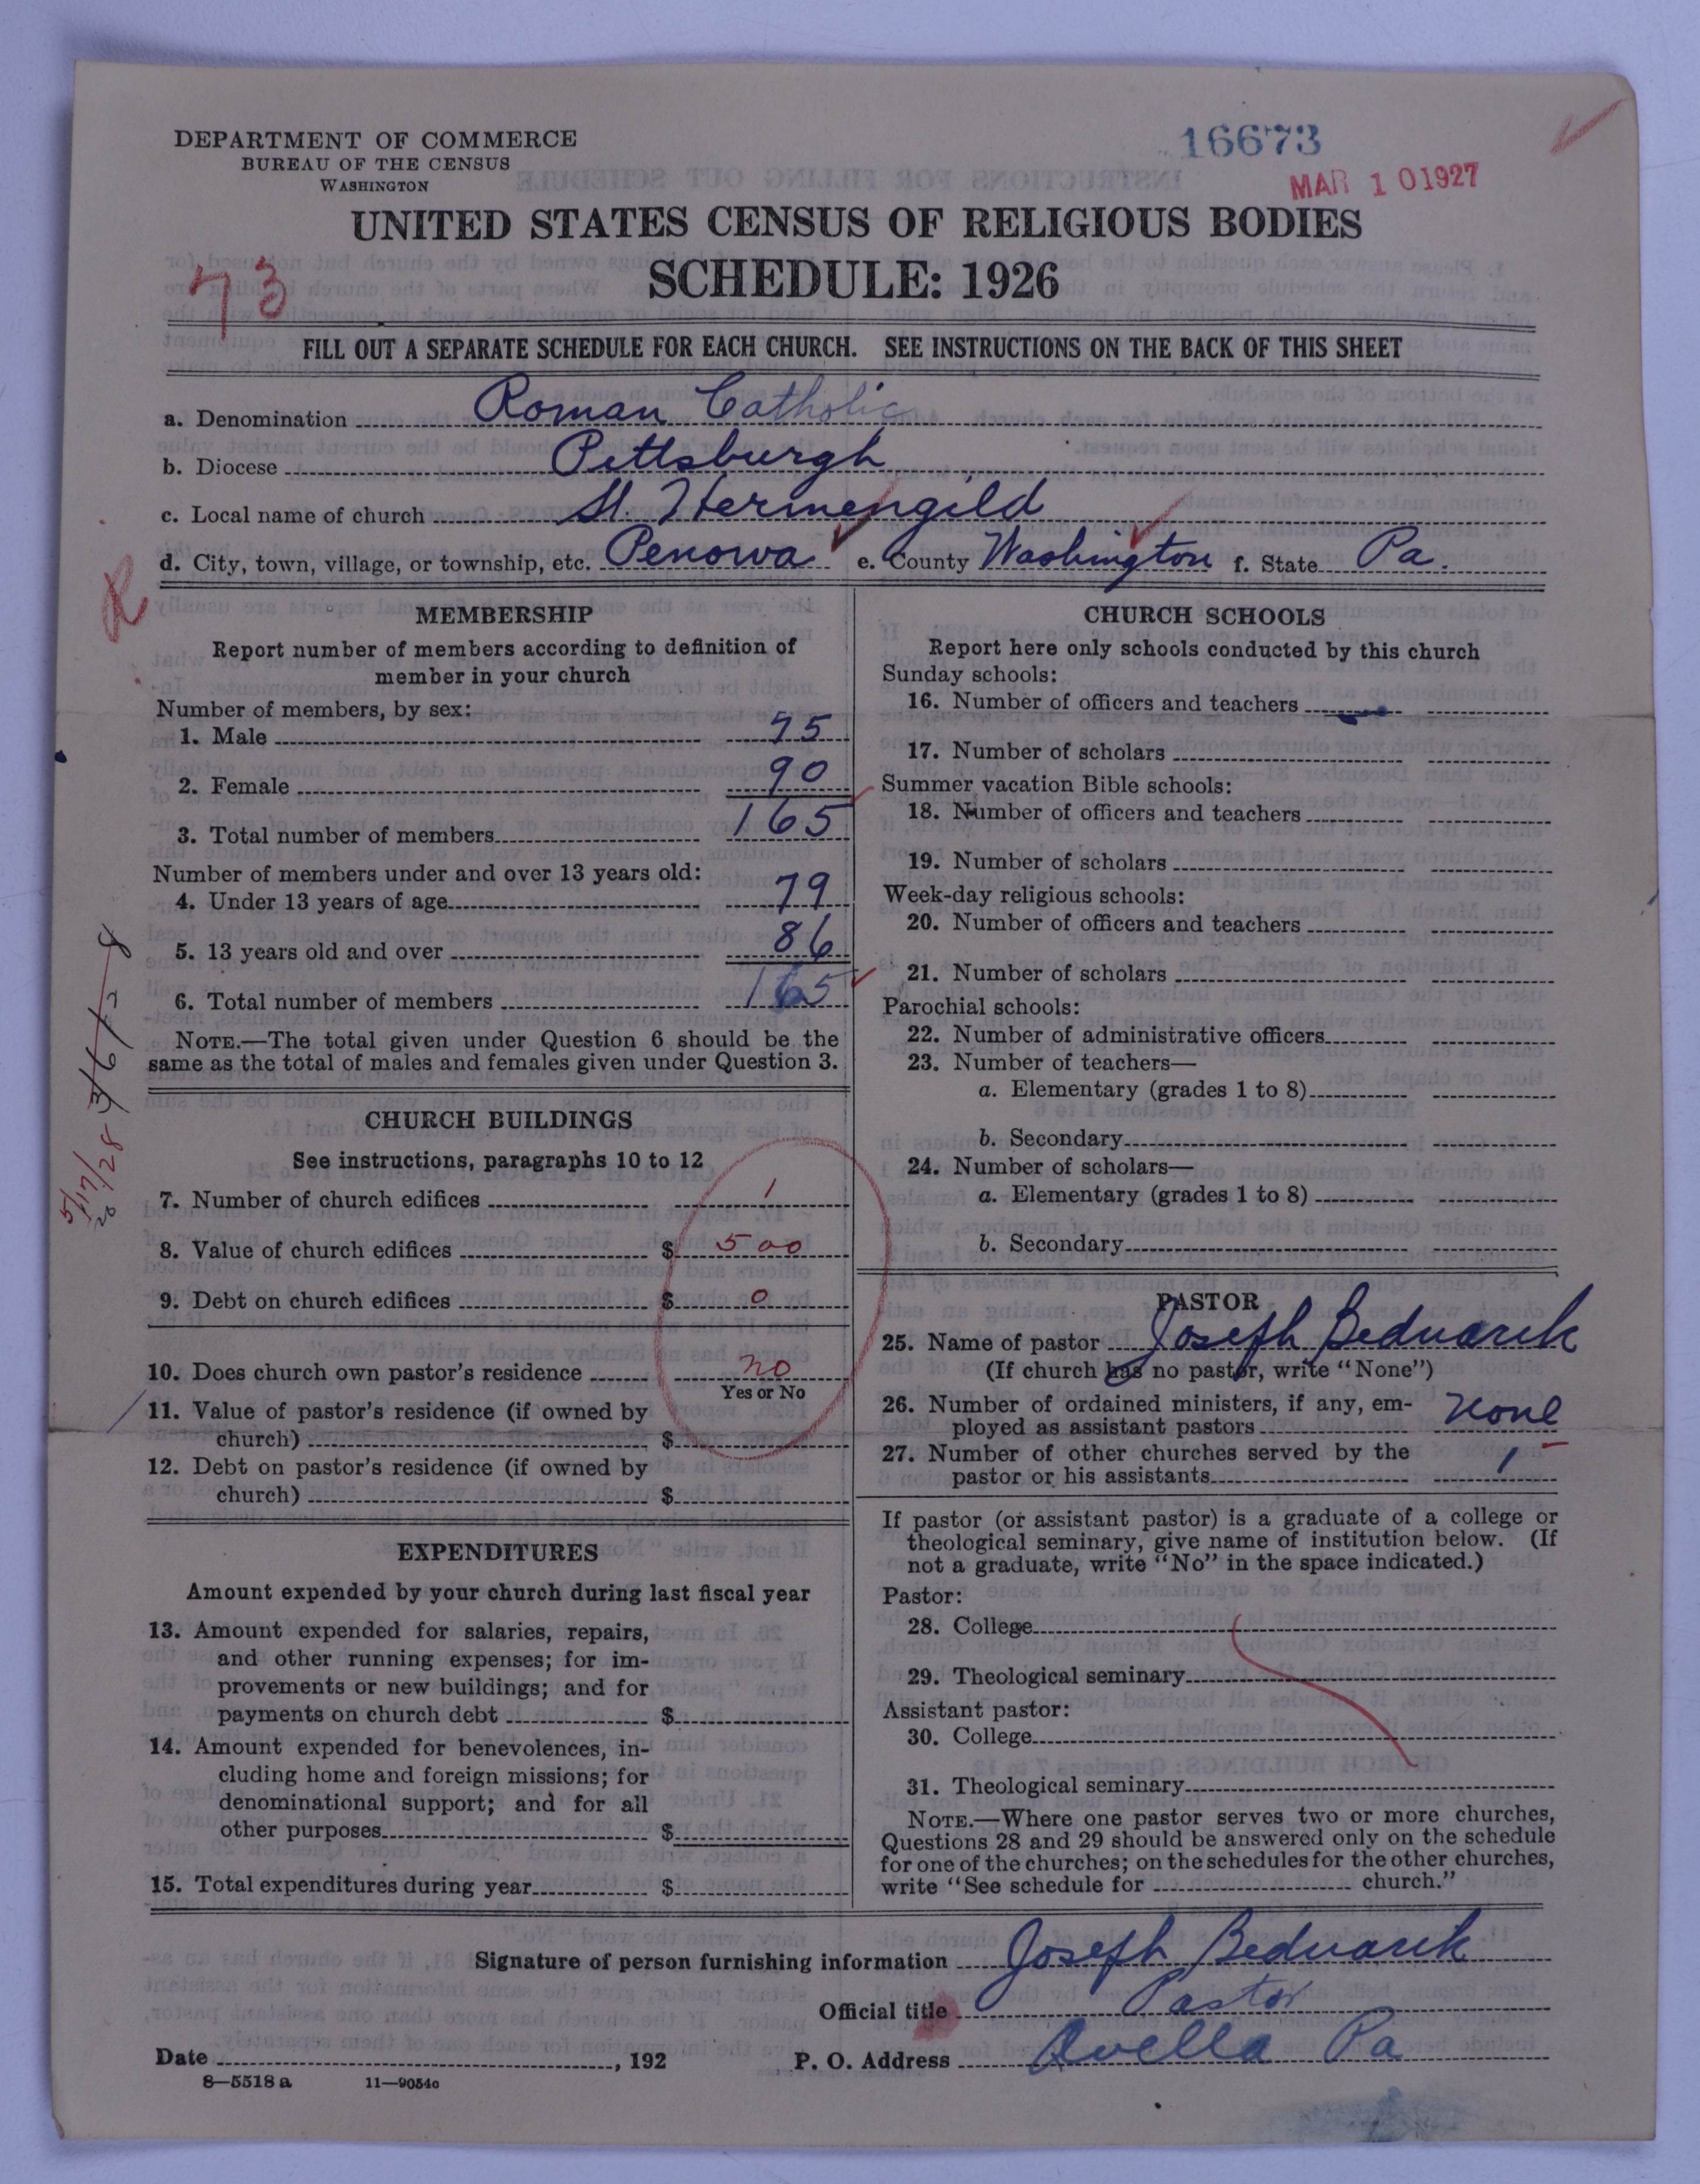 DEPARTMENT OF COMMERCE
BUREAU OF THE CENSUS
WASHINGTON
16673
MAR 10 1927
UNITED STATES CENSUS OF RELIGIOUS BODIES
SCHEDULE: 1926
73
FILL OUT A SEPARATE SCHEDULE FOR EACH CHURCH. SEE INSTRUCTIONS ON THE BACK OF THIS SHEET
a. Denomination Roman Catholic
b. Diocese Pittsburgh
c. Local name of church St. Hermengild
d. City, town, village, or township, etc. Penowa e. County Washington f. State Pa.
R
MEMBERSHIP
Report number of members according to definition of
member in your church
Number of members, by sex:
1. Male 75
2. Female 90
3. Total number of members 165
Number of members under and over 13 years old:
4. Under 13 years of age 79
5. 13 years old and over 86
6. Total number of members 165
NOTE.—The total given under Question 6 should be the
same as the total of males and females given under Question 3.
CHURCH BUILDINGS
See instructions, paragraphs 10 to 12
7. Number of church edifices 1
8. Value of church edifices $ 500
9. Debt on church edifices $ 0
10. Does church own pastor's residence no
Yes or No
11. Value of pastor's residence (if owned by
church) $
12. Debt on pastor's residence (if owned by
church) $
EXPENDITURES
Amount expended by your church during last fiscal year
13. Amount expended for salaries, repairs,
and other running expenses; for im-
provements or new buildings; and for
payments on church debt $
14. Amount expended for benevolences, in-
cluding home and foreign missions; for
denominational support; and for all
other purposes $
15. Total expenditures during year $
CHURCH SCHOOLS
Report here only schools conducted by this church
Sunday schools:
16. Number of officers and teachers
17. Number of scholars
Summer vacation Bible schools:
18. Number of officers and teachers
19. Number of scholars
Week-day religious schools:
20. Number of officers and teachers
21. Number of scholars
Parochial schools:
22. Number of administrative officers
23. Number of teachers—
a. Elementary (grades 1 to 8)
b. Secondary
24. Number of scholars—
a. Elementary (grades 1 to 8)
b. Secondary
PASTOR
25. Name of pastor Joseph Bednarik
(If church has no pastor, write "None")
26. Number of ordained ministers, if any, em-
ployed as assistant pastors none
27. Number of other churches served by the
pastor or his assistants 1
If pastor (or assistant pastor) is a graduate of a college or
theological seminary, give name of institution below. (If
not a graduate, write "No" in the space indicated.)
Pastor:
28. College
29. Theological seminary
Assistant pastor:
30. College
31. Theological seminary
NOTE.—Where one pastor serves two or more churches,
Questions 28 and 29 should be answered only on the schedule
for one of the churches; on the schedules for the other churches,
write "See schedule for church."
Signature of person furnishing information Joseph Bednarik
Official title Pastor
Date , 192 P. O. Address Avella Pa
8—5518 a 11—9054c